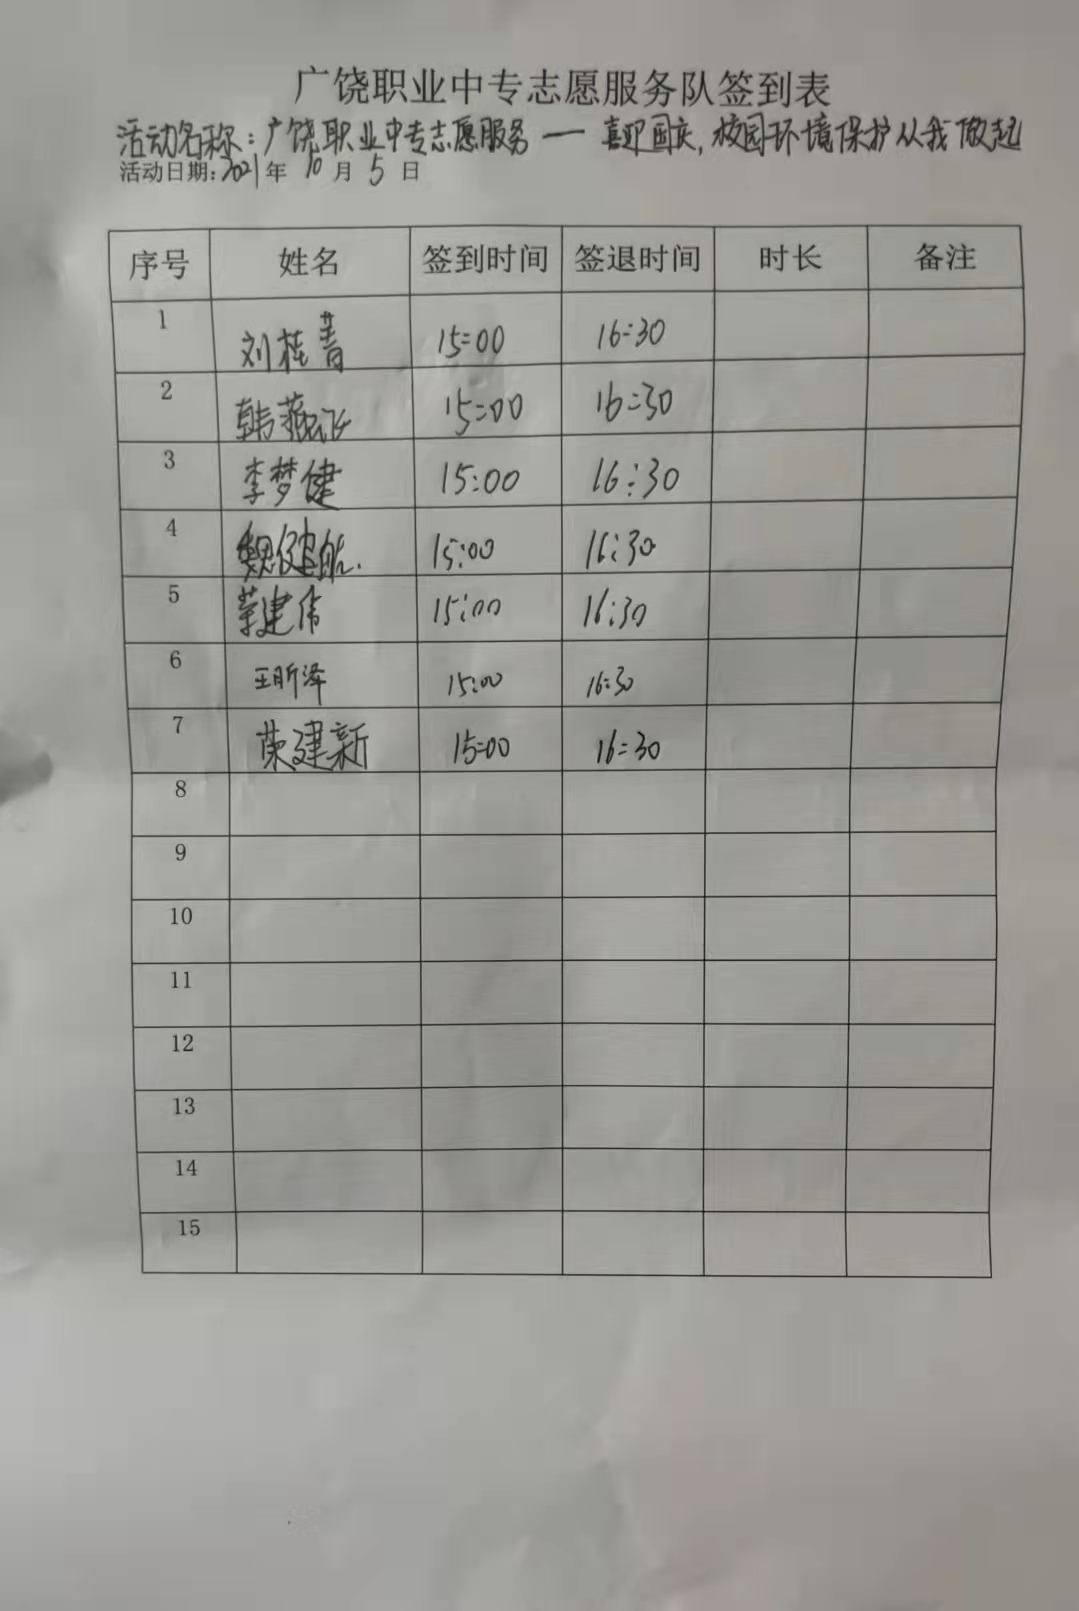 广饶职业中专志愿服务队签到表
活动名称：广饶职业中专志愿服务 — 喜迎国庆，校园环境保护从我做起
活动日期：2021年 10月 5日
序号 姓名 签到时间 签退时间 时长 备注
1 刘桂菁 15:00 16:30
2 韩燕飞 15:00 16:30
3 李梦健 15:00 16:30
4 魏健航. 15:00 16:30
5 荣建伟 15:00 16:30
6 王昕泽 15:00 16:30
7 荣建新 15:00 16:30
8
9
10
11
12
13
14
15